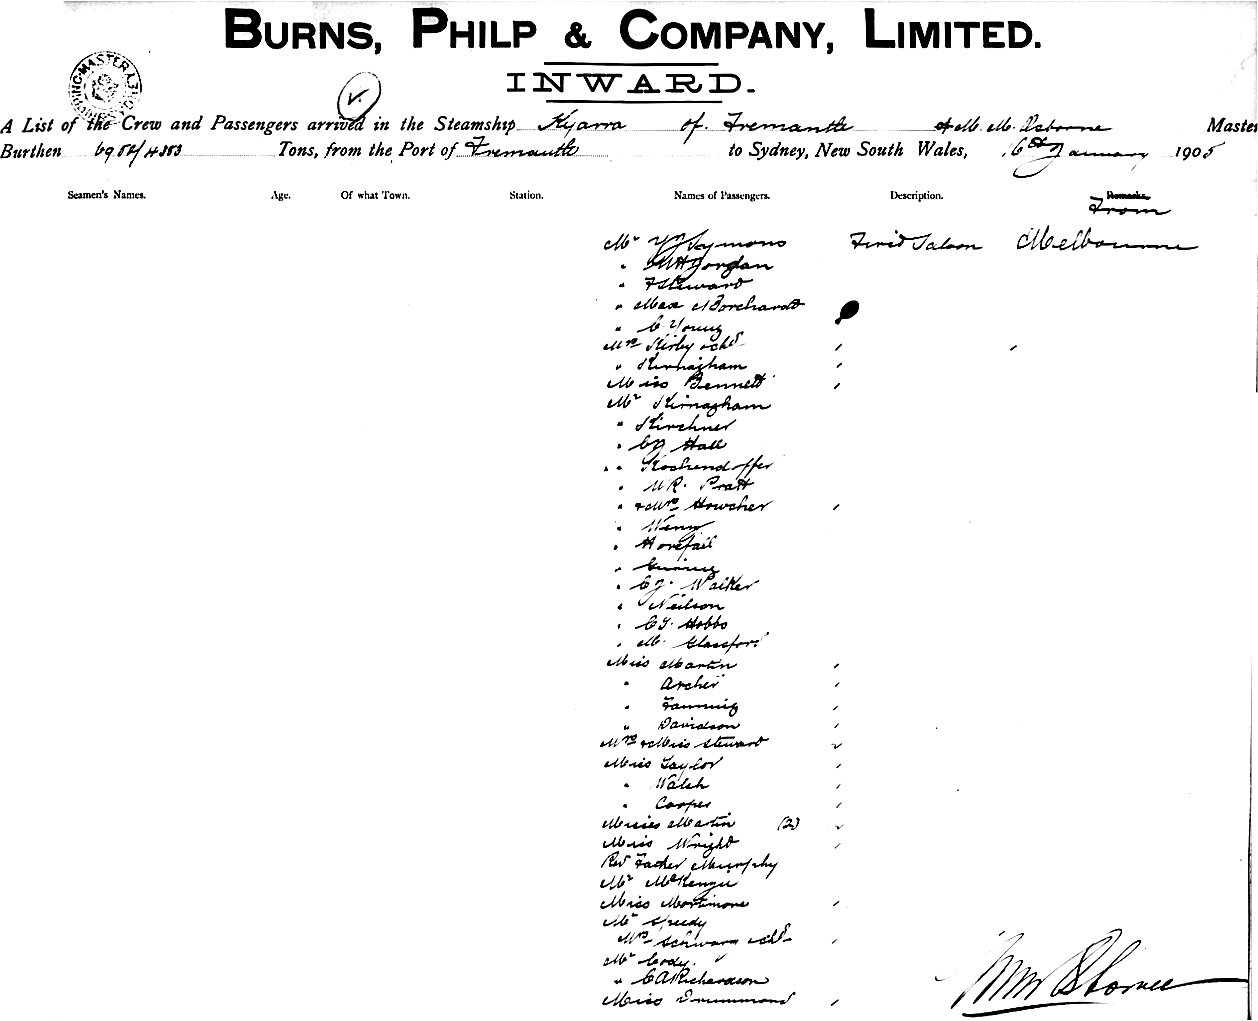 BURNS, PHILP & COMPANY, LIMITED.
INWARD.
A List of the Crew and Passengers arrived in the Steamship Kyarra of Fremantle M. M. Osborne Master
Burthen 6952/4383 Tons, from the Port of Fremantle to Sydney, New South Wales, 16th January 1905
Seamen's Names. Age. Of what Town. Station. Names of Passengers. Description. Remarks.
From
Mr Symons First Saloon Melbourne
" Gordon
" F Steward
" Max Borchardt
" C Young
Mrs Kirby & chd
" Kirnagham
Miss Bennett
Mr Kirnagham
" Kirchner
" Hall
" Koshendoffer
" W R. Pratt
" & Mrs Howcher
"
" Horsfail
"
" C J. Walker
" Neilson
" C J. Hobbs
" M. Glassford
Miss Martin
" Archer
" Fanning
" Davidson
Mrs & Miss Stewart
Miss Taylor
" Walsh
" Cooper
Misses Martin (2)
Miss Wright
Rev Father Murphy
Mr McKenzie
Miss Mortimore
Mr Speedy
Mrs Schwarz & chd
Mr Cody.
" C A Richardson
Miss Drummond